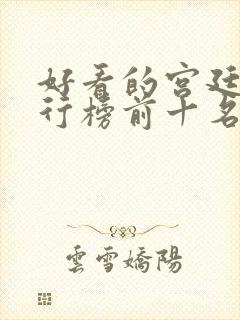 好看的宫廷
行榜前十名
雲雪嬌陽